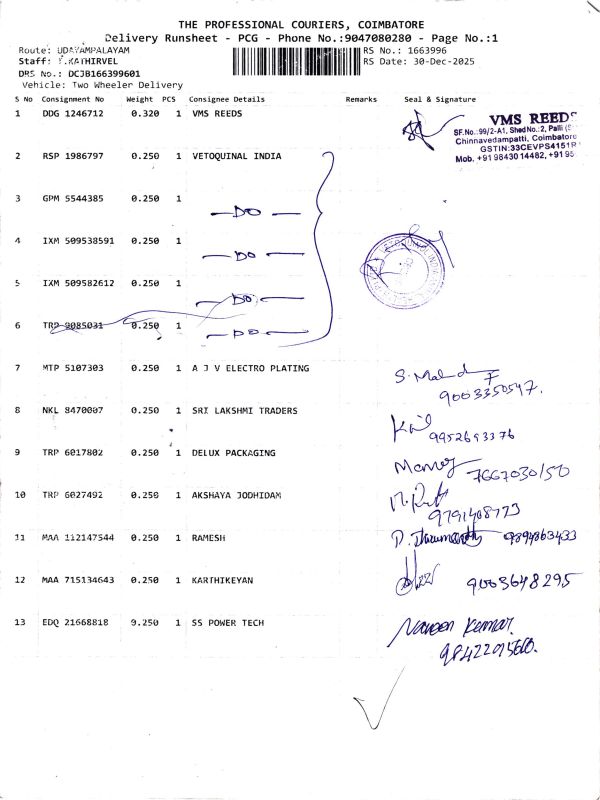 THE PROFESSIONAL COURIERS, COIMBATORE
Delivery Runsheet - PCG - Phone No.:9047080280 - Page No.:1
Route: UDAYAMPALAYAM
RS No.: 1663996
Staff: KATHIRVEL
RS Date: 30-Dec-2025
DRS No.: DCJB166399601
Vehicle: Two Wheeler Delivery
S No Consignment No Weight PCS Consignee Details Remarks Seal & Signature
1 DDG 1246712 0.320 1 VMS REEDS
VMS REEDS
SF.No.:99/2-A1, Shed No.:2, Palli
Chinnavedampatti, Coimbatore
GSTIN:33CEVPS4151R
Mob. +91 98430 14482, +91 95
2 RSP 1986797 0.250 1 VETOQUINAL INDIA
3 GPM 5544385 0.250 1
— DO —
4 IXM 509538591 0.250 1
— DO —
5 IXM 509582612 0.250 1
— DO —
6 TRP 9085031 0.250 1
— DO —
7 MTP 5107303 0.250 1 A J V ELECTRO PLATING
9003350547.
8 NKL 8470007 0.250 1 SRI LAKSHMI TRADERS
9952693376
9 TRP 6017802 0.250 1 DELUX PACKAGING
Manoj 7667030150
10 TRP 6027492 0.250 1 AKSHAYA JODHIDAM
9791408773
11 MAA 112147544 0.250 1 RAMESH
9894863433
12 MAA 715134643 0.250 1 KARTHIKEYAN
9003648295
13 EDQ 21668818 0.250 1 SS POWER TECH
Naveen Kumar.